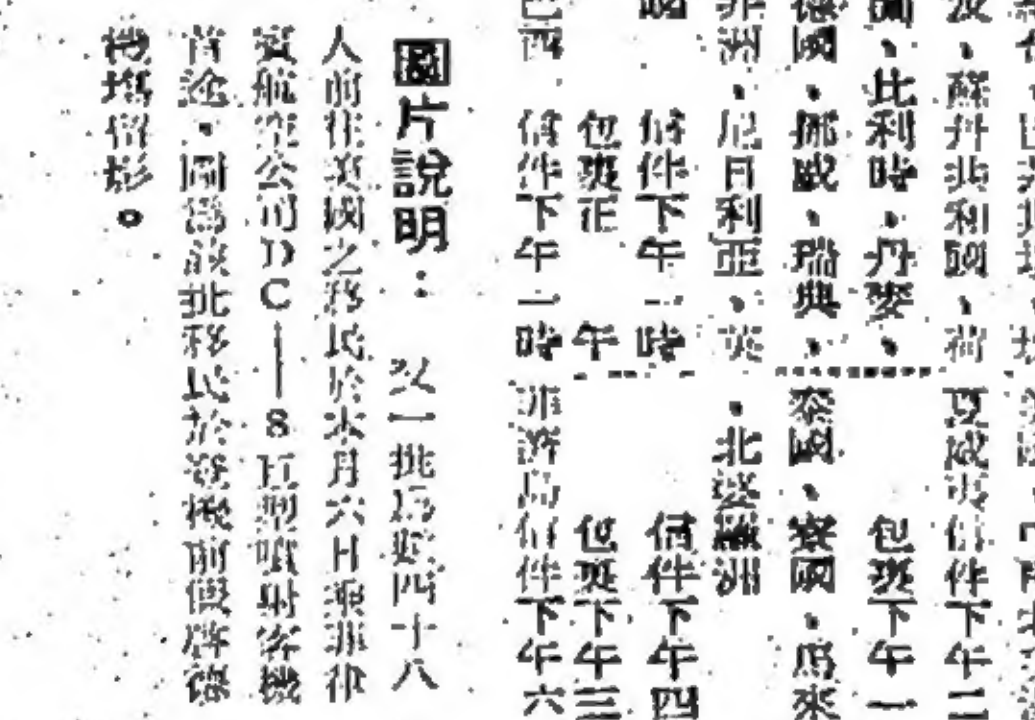 、蘇丹共和國、荷
、比利時、丹麥、
德國、挪威、瑞典、
非洲、尼日利亞、英
信件下午一時
包班正午
巴西 信件下午一時
夏威夷信件下午二
包班下午一
泰國、寮國、馬來
、北婆羅洲
信件下午四
包班下午三
信件下午六
圖片說明：又一批為數四十八
人前往英國之移民於本月六日乘菲律
賓航空公司DC—8巨型噴射客機
首途，圖為該批移民於登機前假啓德
機場留影。